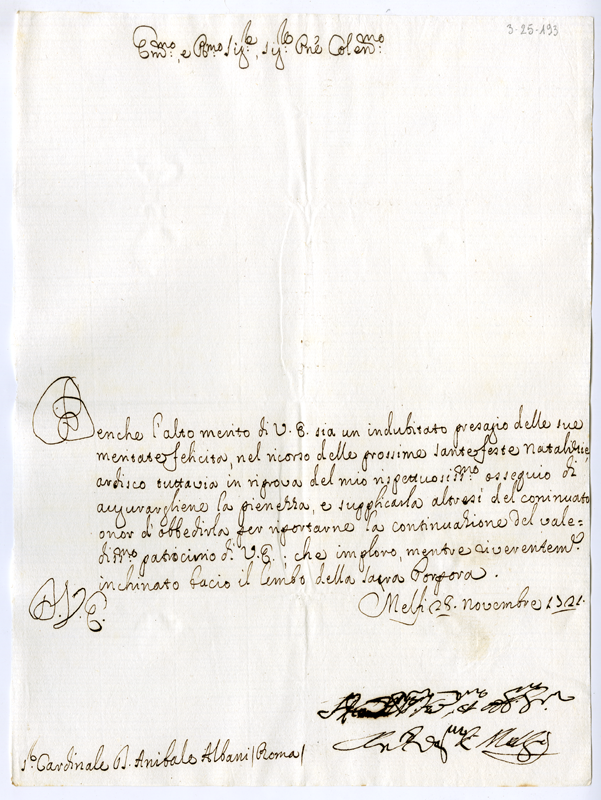 3-25-193
Em̃mo, e Rmo Sigre, sigre Pñe Colenmo
Benche l'alto merito di V. E. sia un indubitato presagio delle sue
meritate felicità, nel ricorso delle prossime sante feste Natalitie,
ardisco tuttavia in riprova del mio rispettuosissmo ossequio di
augurargliene la pienezza, e supplicarla altresì del continuato
onor d'obbedirla per riportarne la continuazione del vale-
dissmo patrocinio di V. E. che imploro, mentre riverentemte
inchinato bacio il lembo della sacra Porpora.
D. V. E.
Melfi 28. novembre 1721.
Melfi
Sr Cardinale D. Anibale Albani / Roma /